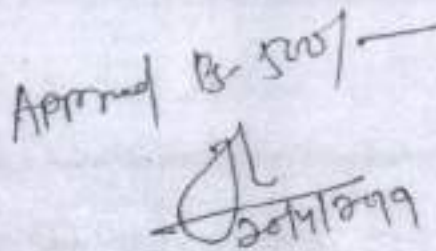 Approved Rs 500/-
20/4/2099